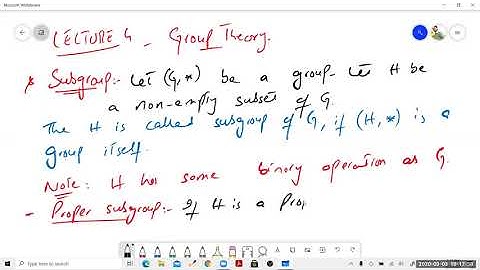 Microsoft Whiteboard
LECTURE 4 - Group Theory.
* Subgroup:- Let (G,*) be a group. Let H be
a non-empty subset of G.
The H is called subgroup of G, if (H,*) is a
group itself.
Note: H has same binary operation as G.
- Proper subgroup:- If H is a Prop
Type here to search